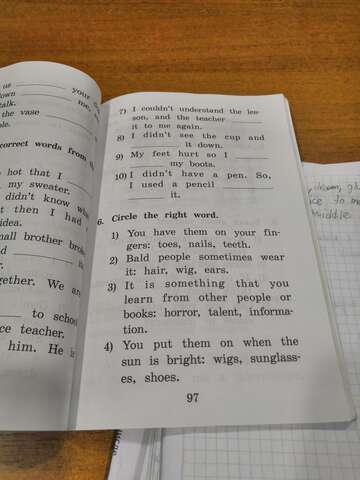 us ___ your
down ___ me,
talk.
the vase ___
correct words from
hot that I
___ my sweater.
didn't know
t then I had
idea.
mall brother
gether. We are
___ to school
ce teacher.
him. He is
7) I couldn't understand the les-
son, and the teacher ___
___ it to me again.
8) I didn't see the cup and
___ it down.
9) My feet hurt so I ___
___ my boots.
10) I didn't have a pen. So,
I used a pencil ___
___ it.
6. Circle the right word.
1) You have them on your fin-
gers: toes, nails, teeth.
2) Bald people sometimes wear
it: hair, wig, ears.
3) It is something that you
learn from other people or
books: horror, talent, informa-
tion.
4) You put them on when the
sun is bright: wigs, sunglass-
es, shoes.
97
middle